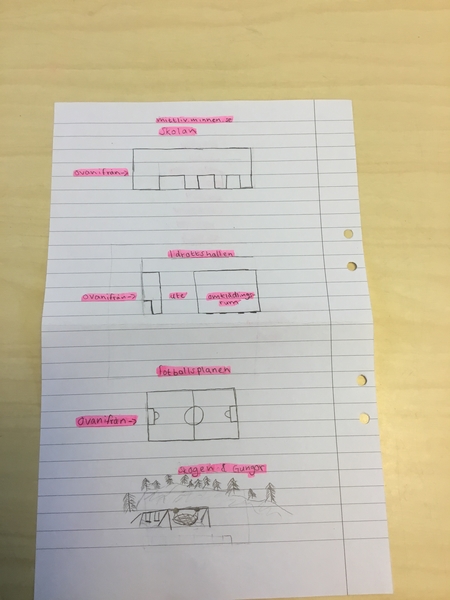 mitt liv minnen
Skolan
ovanifrån→
Idrottshallen
ovanifrån→
ute
omklädnings
rum
fotbollsplanen
Ovanifrån→
Skogen & Gungor